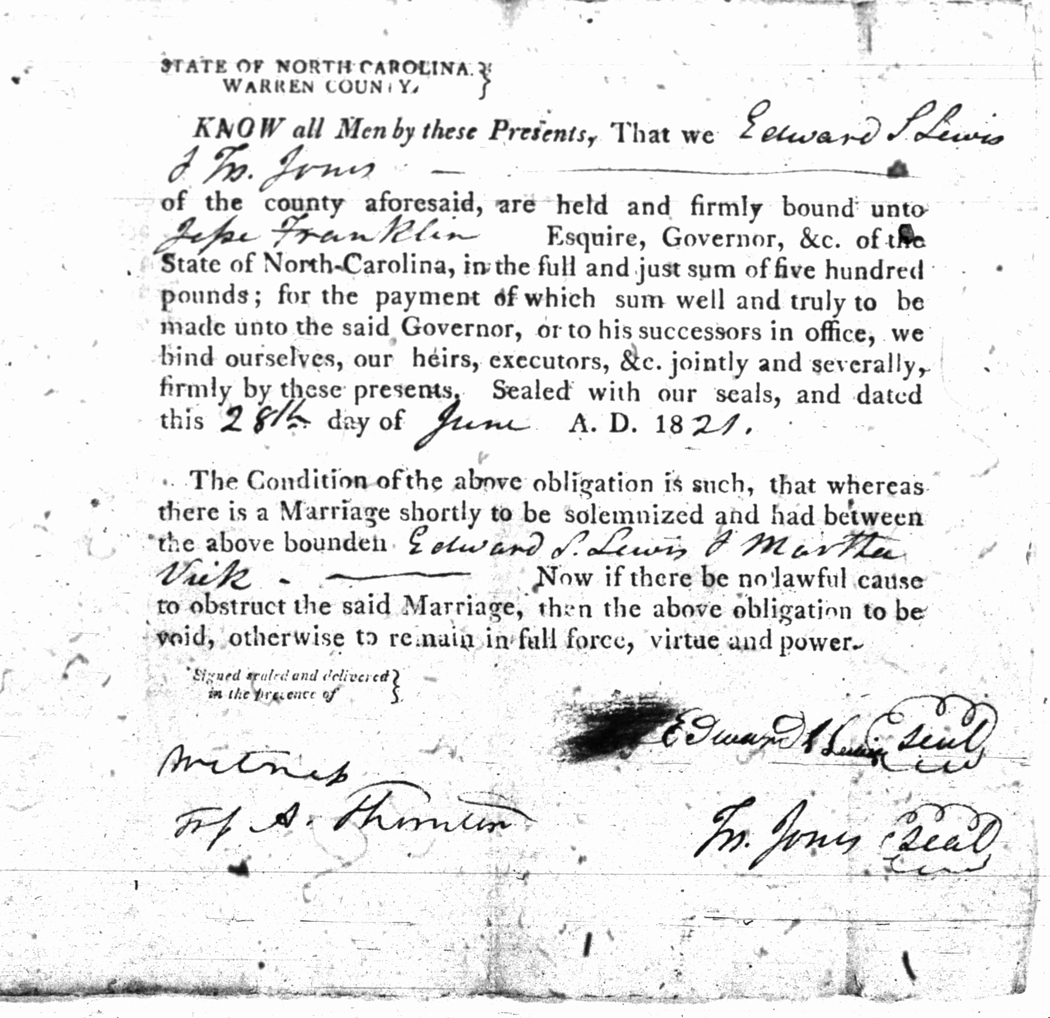 STATE OF NORTH CAROLINA.
WARREN COUNTY.
KNOW all Men by these Presents, That we Edward S Lewis
& Jones —
of the county aforesaid, are held and firmly bound unto
Jesse Franklin Esquire, Governor, &c. of the
State of North-Carolina, in the full and just sum of five hundred
pounds; for the payment of which sum well and truly to be
made unto the said Governor, or to his successors in office, we
bind ourselves, our heirs, executors, &c. jointly and severally,
firmly by these presents. Sealed with our seals, and dated
this 28th day of June A. D. 1821.
The Condition of the above obligation is such, that whereas
there is a Marriage shortly to be solemnized and had between
the above bounden Edward S. Lewis & Martha
Now if there be no lawful cause
to obstruct the said Marriage, then the above obligation to be
void, otherwise to remain in full force, virtue and power.
Signed sealed and delivered
in the presence of
Edward S Lewis seal
Witness
A. Thornton
Jones seal